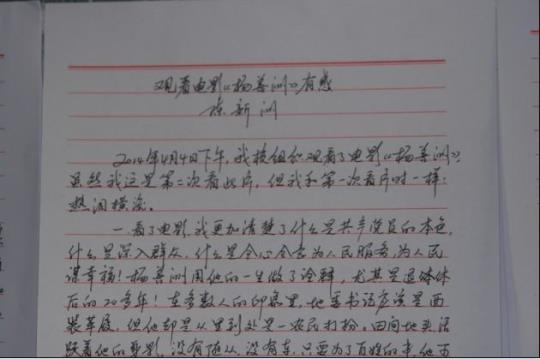 观看电影《杨善洲》有感
陈新洲
2014年4月4日下午,我被组织观看了电影《杨善洲》,
虽然我这是第二次看此片,但我和第一次看片时一样:
热泪横流。
一.看了电影,我更加清楚了什么是共产党员的本色,
什么是深入群众,什么是全心全意为人民服务,为人民
谋幸福!杨善洲用他的一生做了诠释,尤其是退休
后的20多年!在多数人的印象里,地委书记应该是西
装革履,但他却是从里到处是一农民打扮,田间地头活
跃着他的身影,没有随从,没有车,只要为了百姓的事,他